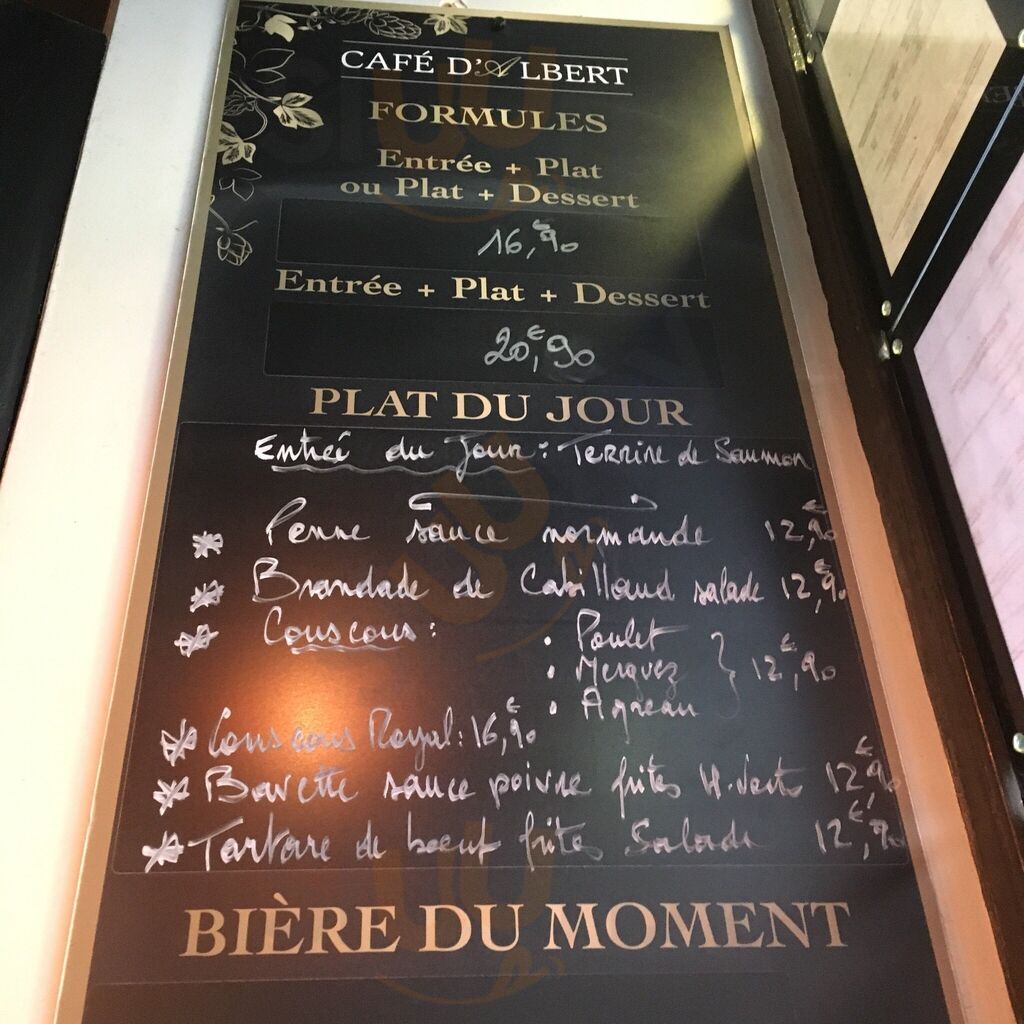 CAFÉ D'ALBERT
FORMULES
Entrée + Plat
ou Plat + Dessert
16,€90
Entrée + Plat + Dessert
20,€90
PLAT DU JOUR
Entrée du Jour : Terrine de Saumon
* Penne sauce normande 12,€90
* Brandade de Cabillaud salade 12,€90
* Couscous : • Poulet
• Merguez } 12,€90
• Agneau
* Couscous Royal : 16,€90
* Bavette sauce poivre frites H.verts 12,€90
* Tartare de boeuf frites Salade 12,€90
BIÈRE DU MOMENT